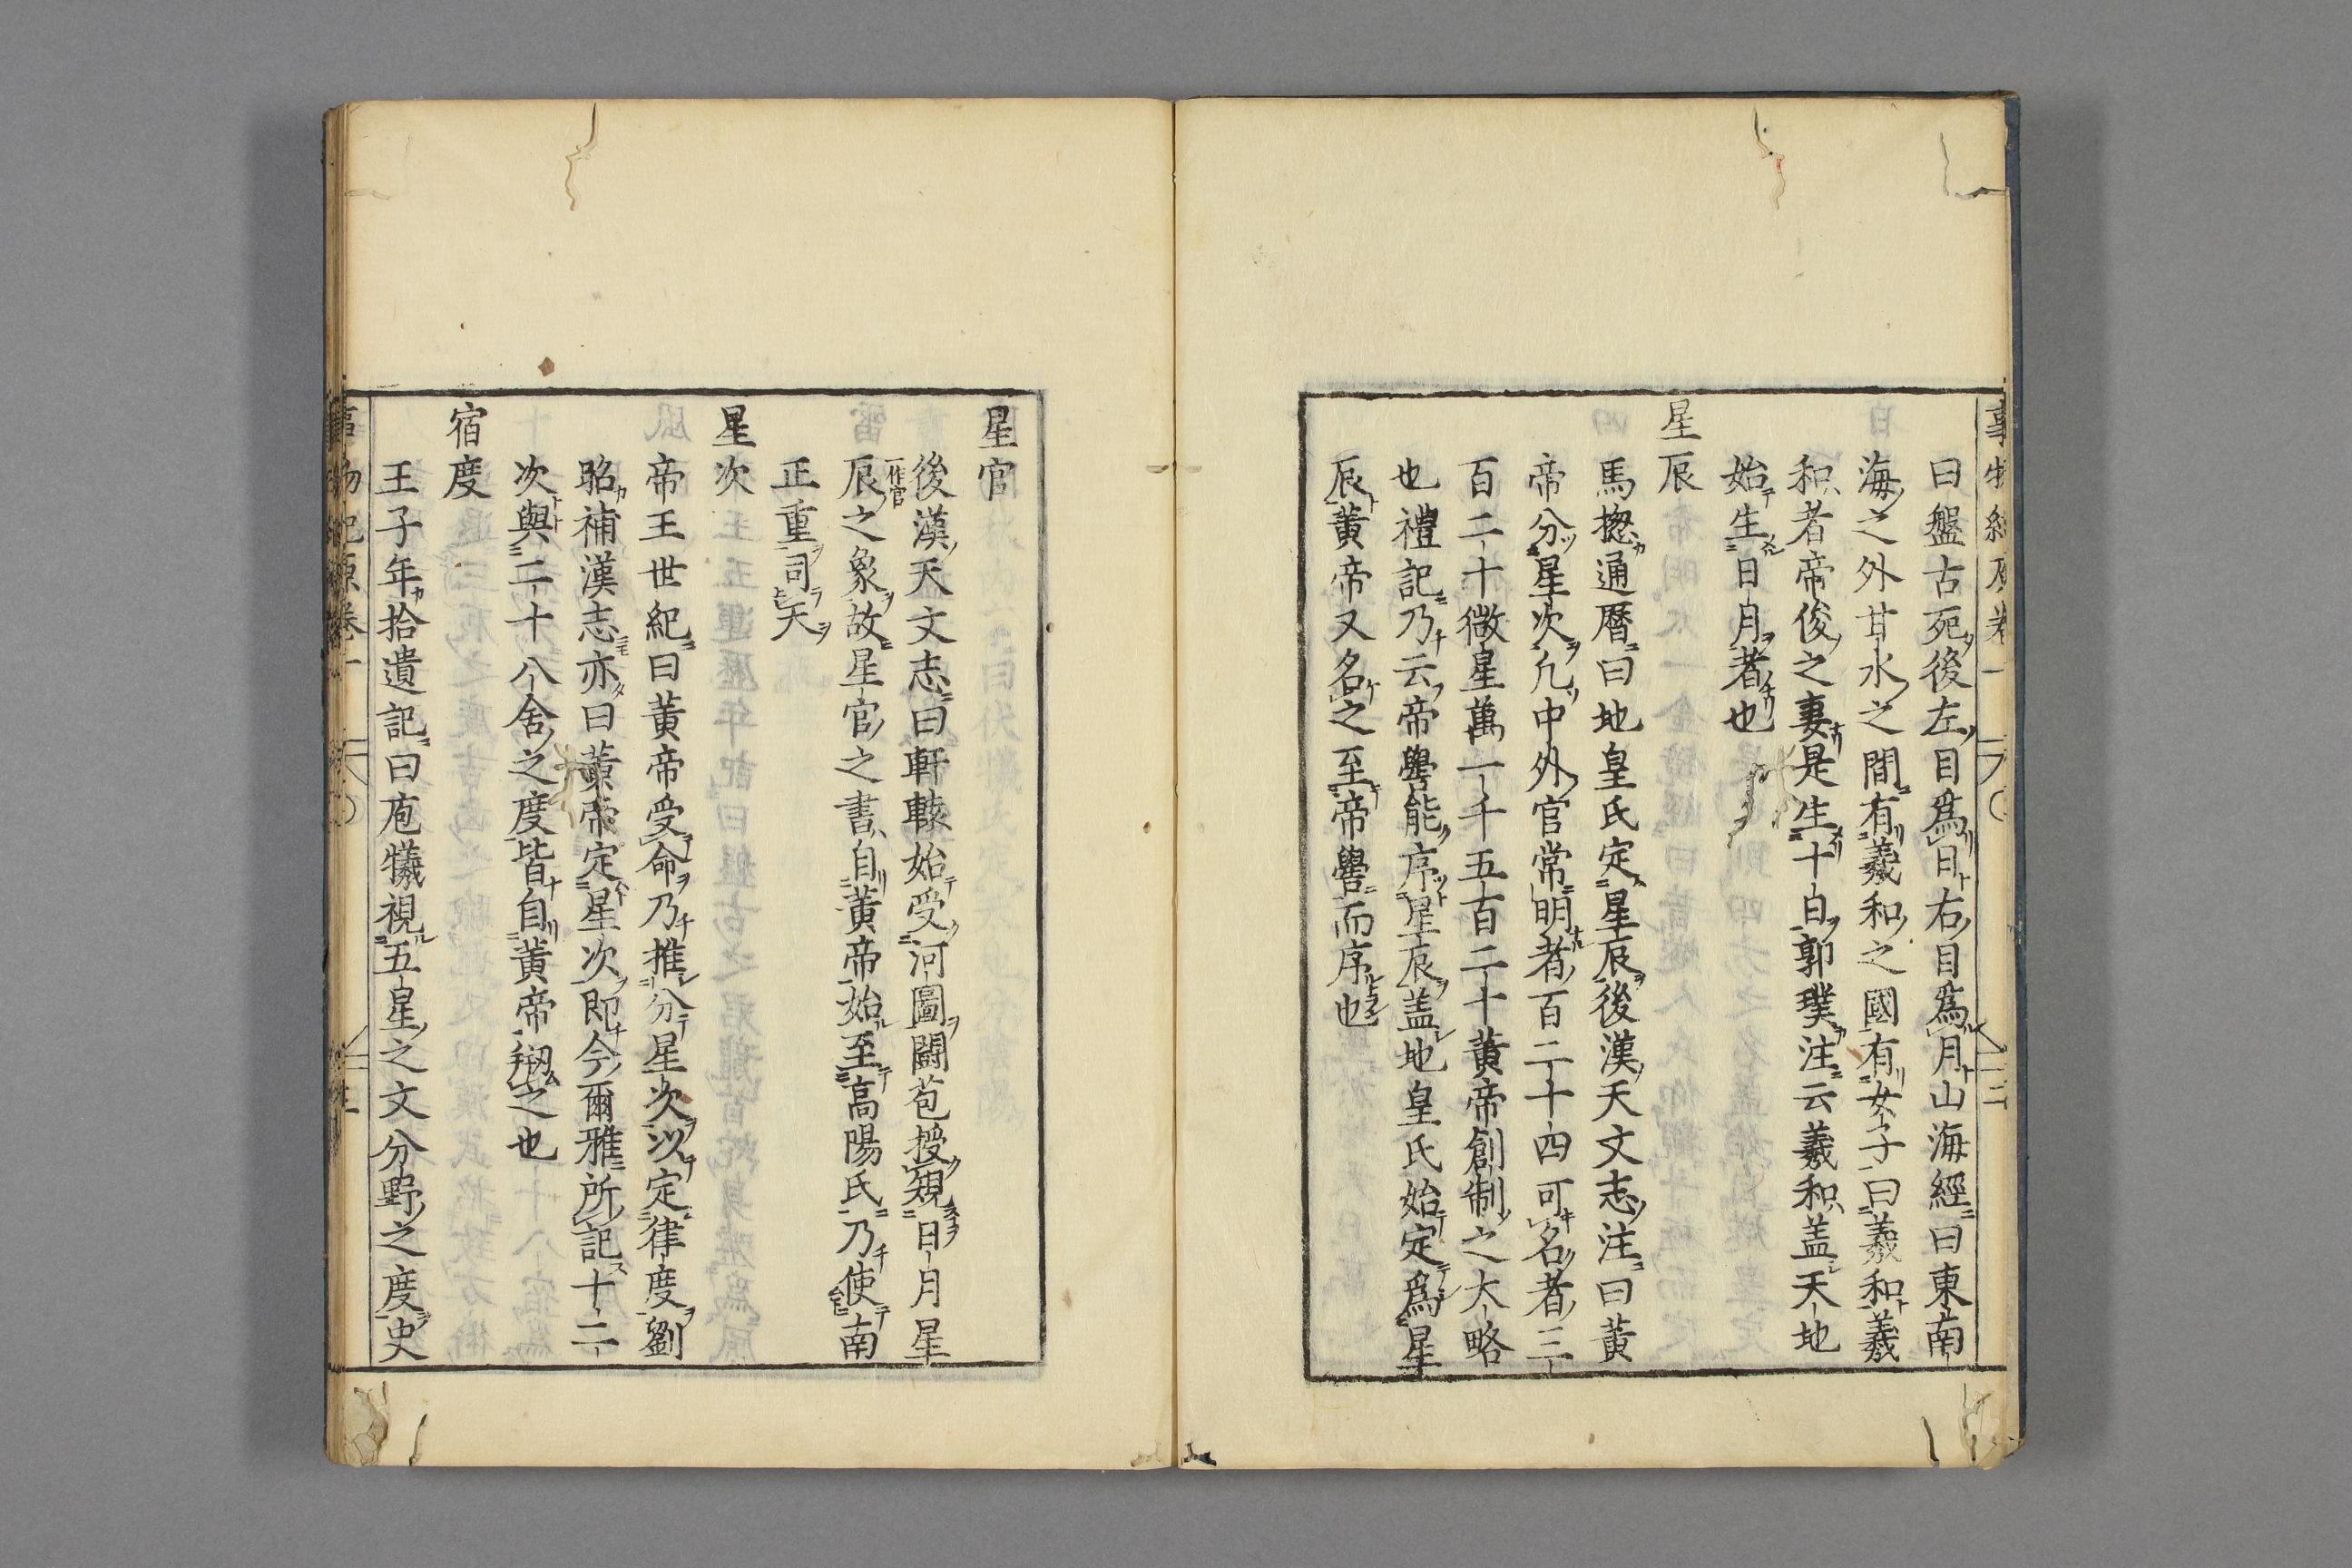 曰盤古死後左目爲日右目爲月山海經曰東南
海之外甘水之間有羲和之國有女子曰羲和羲
和者帝俊之妻是生十日郭璞注云羲和盖天地
始生日月者也
星辰
馬揔通曆曰地皇氏定星辰後漢天文志注曰黄
帝分星次凢中外官常明者百二十四可名者三
百二十微星萬一千五百二十黄帝創制之大略
也禮記乃云帝嚳能序星辰盖地皇氏始定爲星
辰黄帝又名之至帝嚳而序也
星官
後漢天文志曰軒轅始受河圖闘苞授規日月星
辰一作官之象故星官之書自黄帝始至高陽氏乃使南
正重司天
星次
帝王世紀曰黄帝受命乃推分星次以定律度劉
昭補漢志亦曰黄帝定星次即今爾雅所記十二
次與二十八舍之度皆自黄帝剏之也
宿度
王子年拾遺記曰庖犧視五星之文分野之度史
事物紀原卷一